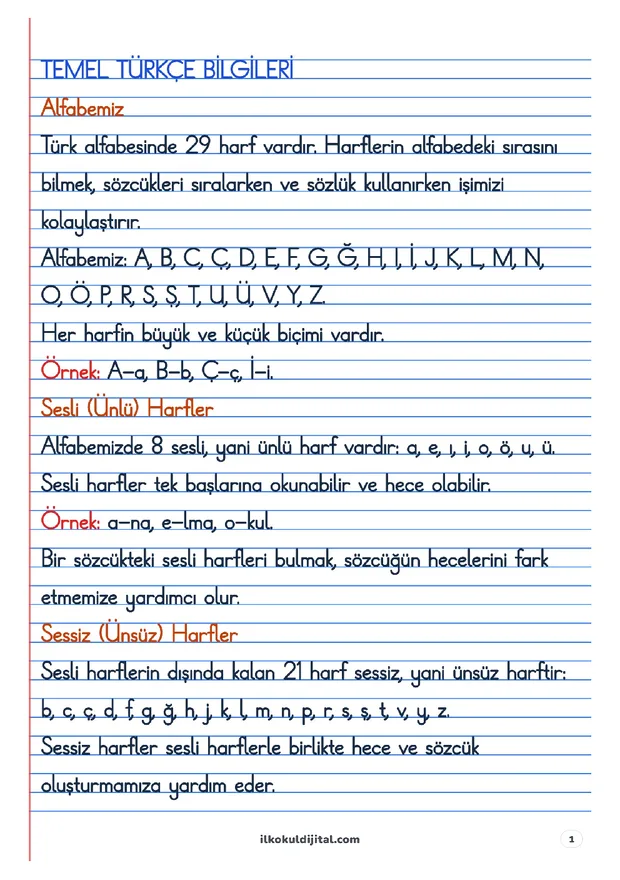 TEMEL TÜRKÇE BİLGİLERİ
Alfabemiz
Türk alfabesinde 29 harf vardır. Harflerin alfabedeki sırasını
bilmek, sözcükleri sıralarken ve sözlük kullanırken işimizi
kolaylaştırır.
Alfabemiz: A, B, C, Ç, D, E, F, G, Ğ, H, I, İ, J, K, L, M, N,
O, Ö, P, R, S, Ş, T, U, Ü, V, Y, Z.
Her harfin büyük ve küçük biçimi vardır.
Örnek: A–a, B–b, Ç–ç, İ–i.
Sesli (Ünlü) Harfler
Alfabemizde 8 sesli, yani ünlü harf vardır: a, e, ı, i, o, ö, u, ü.
Sesli harfler tek başlarına okunabilir ve hece olabilir.
Örnek: a–na, e–lma, o–kul.
Bir sözcükteki sesli harfleri bulmak, sözcüğün hecelerini fark
etmemize yardımcı olur.
Sessiz (Ünsüz) Harfler
Sesli harflerin dışında kalan 21 harf sessiz, yani ünsüz harftir:
b, c, ç, d, f, g, ğ, h, j, k, l, m, n, p, r, s, ş, t, v, y, z.
Sessiz harfler sesli harflerle birlikte hece ve sözcük
oluşturmamıza yardım eder.
ilkokuldijital.com
1